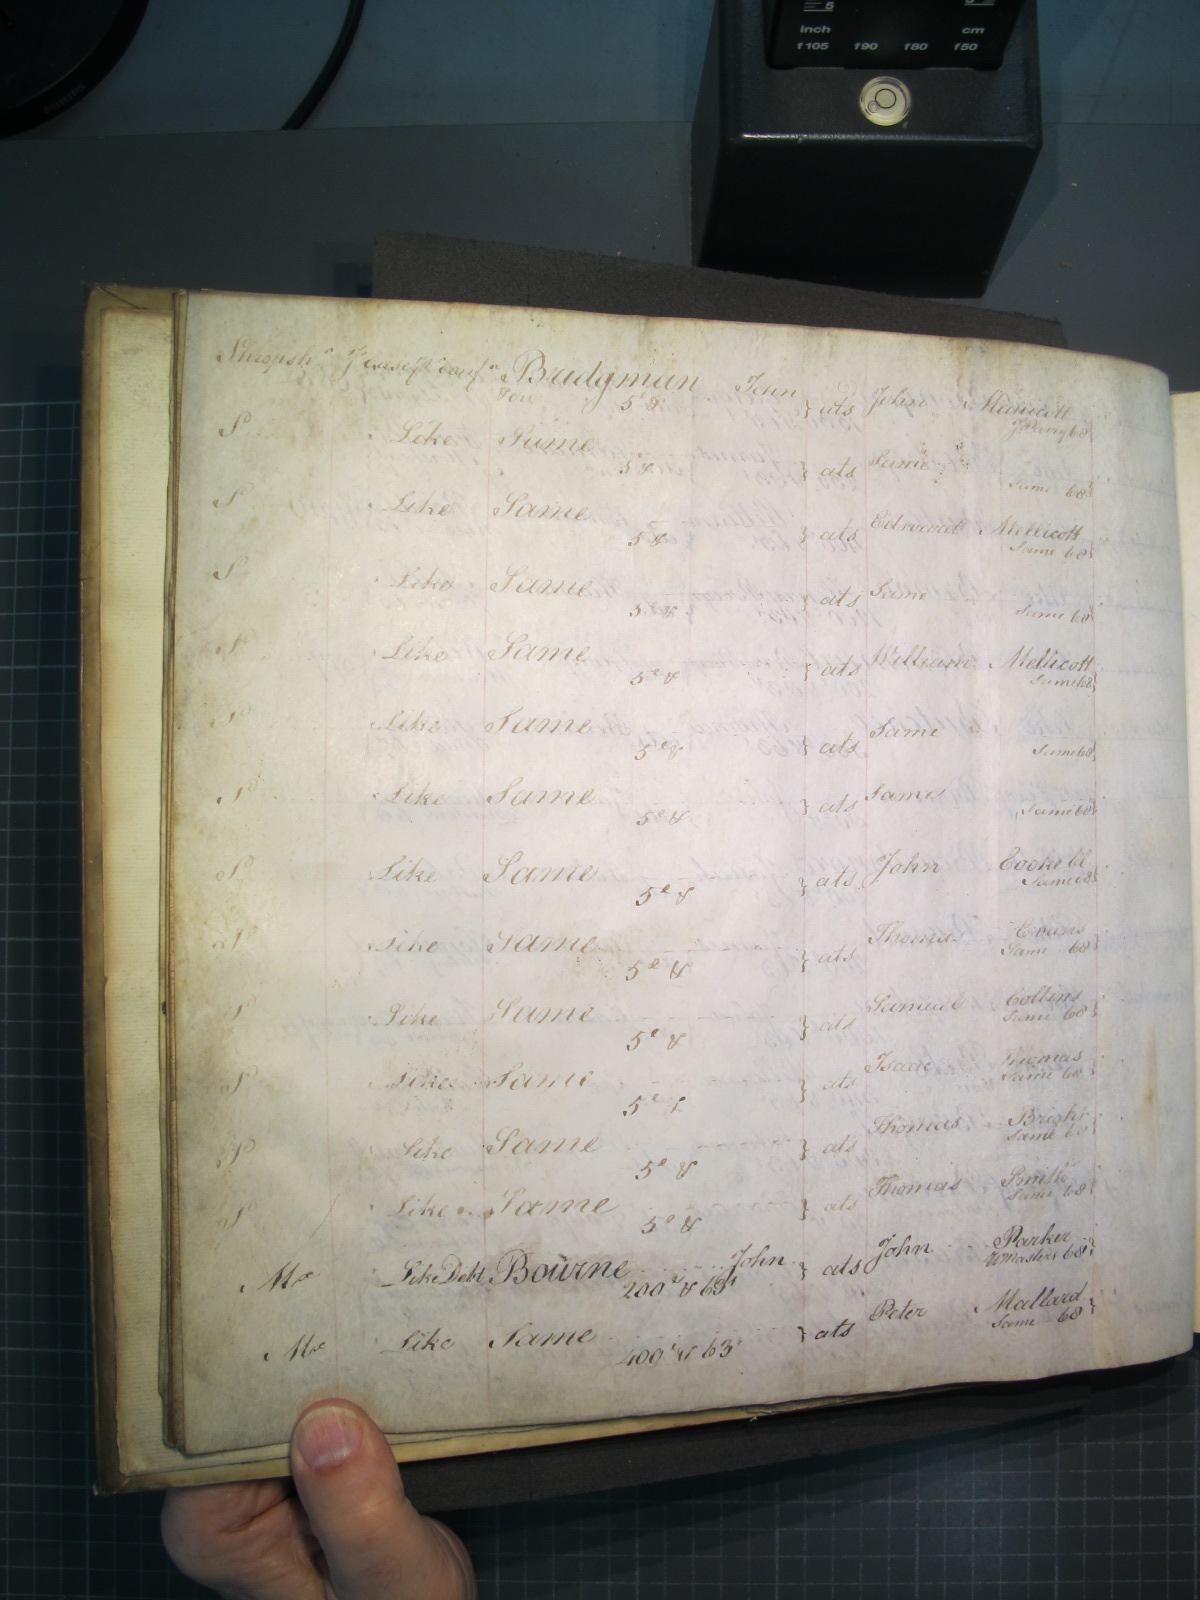 5
inch cm
f105 f90 f80 f50
PHILIPS
Bridgman John
5£ & } ats John Mellicott
68
So Like Same
5£ & } ats Same
Same 68
So Like Same
5£ & } ats Edward Mellicott
Same 68
So Like Same
5£ & } ats Same
Same 68
So Like Same
5£ & } ats William Mellicott
Same 68
So Like Same
5£ & } ats Same
Same 68
So Like Same
5£ & } ats Same
Same 68
So Like Same
5£ & } ats John
Same 68
So Like Same
5£ & } ats Thomas Evans
Same 68
So Like Same
5£ & } ats Samuel Collins
Same 68
So Like Same
5£ & } ats Isaac Thomas
Same 68
So Like Same
5£ & } ats Thomas Bright
Same 68
So Like Same
5£ & } ats Thomas Smith
Same 68
Mx Like Debt Bourne John
200£ & 63s } ats John Parker
WMasters 68
Mx Like Same
400£ & 63s } ats Peter Mallard
Same 68